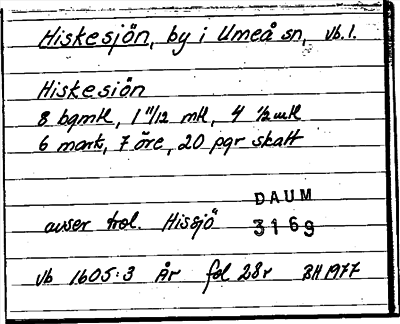 Hiskesjön, by i Umeå sn, Vb.l.
Hiskesiön
8 bgmkl, 1 11/12 mkl, 4 1/2 mkl
6 mark, 7 öre, 20 pgr skatt
DAUM
avser trol. Hissjö
3169
Vb 1605:3 År fol 28r BH 1977